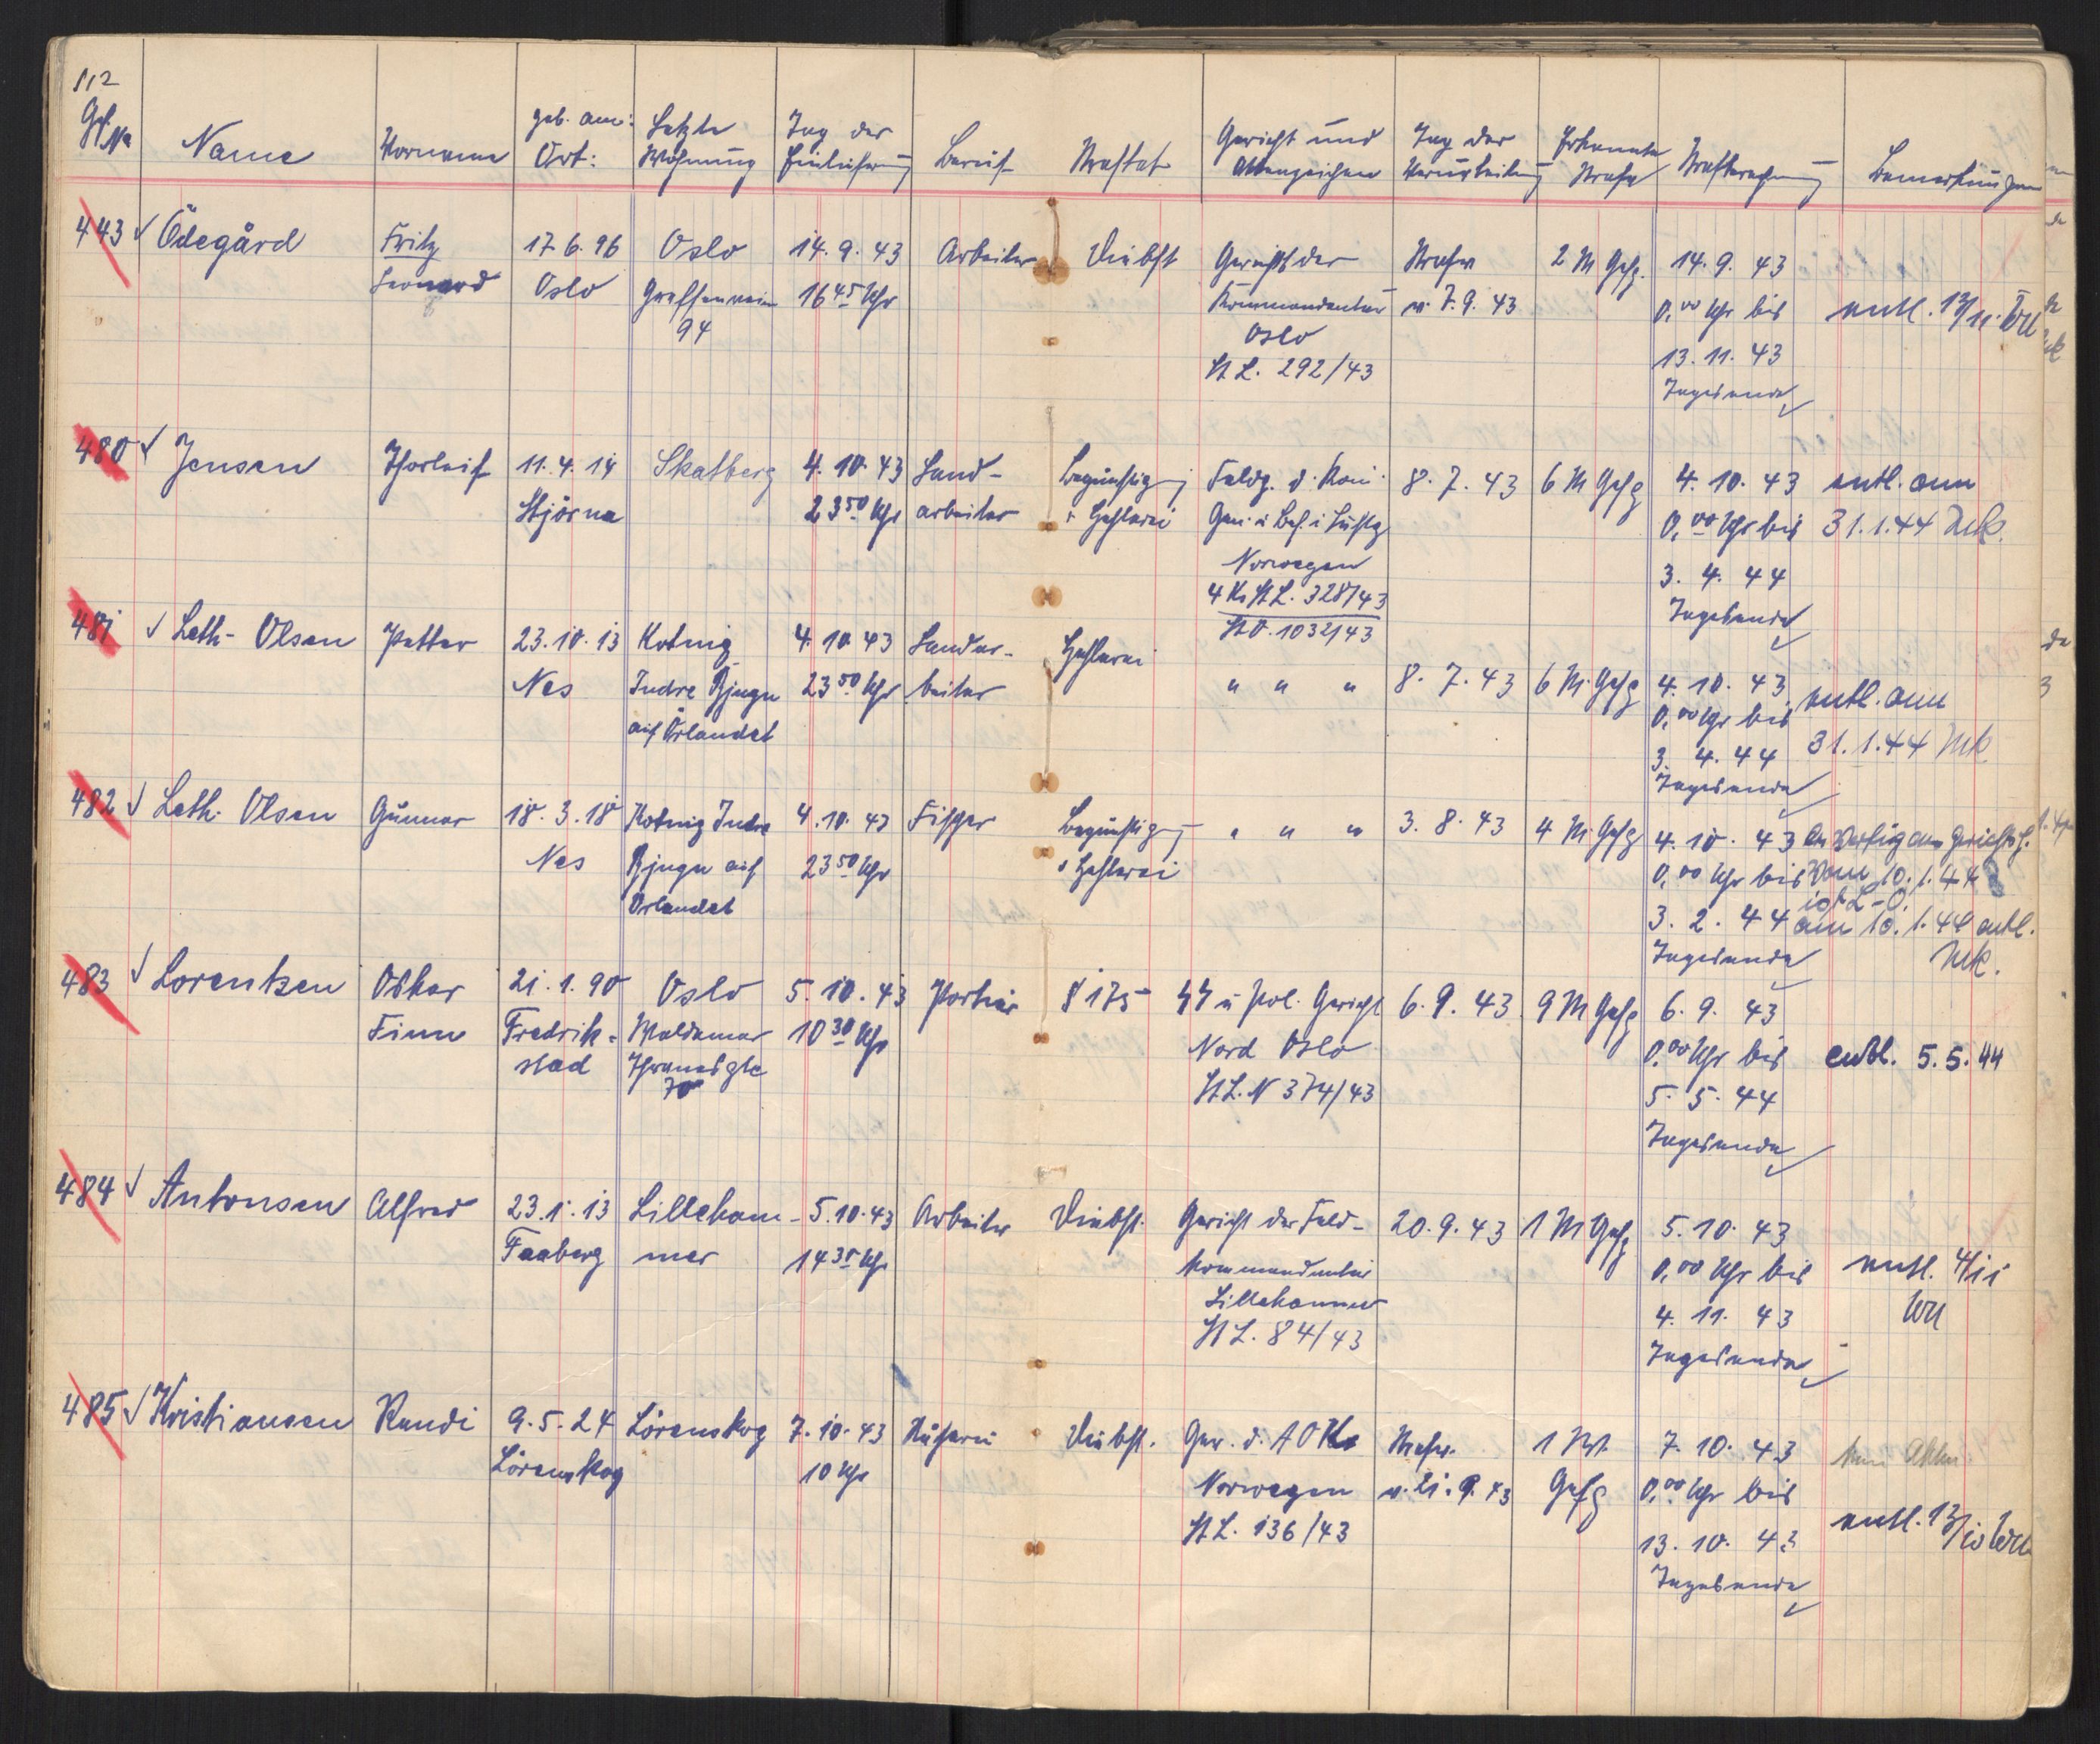 112
Gef. No
Name
Vorname
geb. am:
Ort:
Letzte
Wohnung
Tag der
Einlieferung
Beruf
Straftat
Gericht und
Aktenzeichen
Tag der
Verurteilung
Erkannte
Strafe
Strafberechnung
Bemerkungen
443 √ Ödegård Fritz 17.6.96 Oslo 14.9.43 Arbeiter Diebst Gericht der Strafv 2 M Gefg. 14.9.43
Leonard Oslo 16 45 Uhr Kommandantur v. 7.9.43 0,00 Uhr bis entl. 13/11. Wll
94 Oslo 13.11.43
St L. 292/43 Tagesende √
480 √ Jensen Thorleif 11.4.14 Skatberg 4.10.43 Land- Begünstigg Feldg. d. Kom. 8.7.43 6 M Gefg 4.10.43 entl. am
Stjörna 23 50 Uhr arbeiter u Hehlerei Gen. u Bef. i Luftg 0,00 Uhr bis 31.1.44
Norwegen 3.4.44
4 K St L. 328/43 Tagesende √
St O. 1032/43
481 √ Leth-Olsen Petter 23.10.13 Kotnig 4.10.43 Landar- Hehlerei " " " 8.7.43 6 M. Gefg 4.10.43 entl. am
Nes Indre Bjugn 23 50 Uhr beiter 0,00 Uhr bis 31.1.44
auf Örlandet 3.4.44
Tagesende √
482 √ Leth. Olsen Gunnar 18.3.18 Kotnig Indre 4.10.43 Fischer Begünstigg " " " 3.8.43 4 M. Gefg 4.10.43
Nes Bjugn auf 23 50 Uhr u Hehlerei 0,00 Uhr bis vom 10.1.44
Örlandet 3.2.44 am 10.1.44 entl.
Tagesende √
483 √ Lorentzen Oskar 21.1.90 Oslo 5.10.43 Portier § 175 SS u Pol. Gericht 6.9.43 9 M Gefg 6.9.43
Finn Fredrik- Waldemar 10 30 Uhr Nord Oslo 0,00 Uhr bis entl. 5.5.44
stad Thranesgte St L. N 374/43 5.5.44
70 Tagesende √
484 √ Antonsen Alfred 23.1.13 Lilleham- 5.10.43 Arbeiter Diebst. Gericht der Feld- 20.9.43 1 M Gefg 5.10.43
Faaberg mer 14 35 Uhr kommandantur 0,00 Uhr bis entl. 4/11
Lillehammer 4.11.43 Wll
St L. 84/43 Tagesende √
485 √ Kristiansen Randi 9.5.24 Lörenskog 7.10.43 Diebst. Ger. d. AOK Strafv. 1 Wo. 7.10.43
Lörenskog 10 Uhr Norwegen v. 21.9.43 Gefg 0,00 Uhr bis
St L. 136/43 13.10.43 entl. 13/10 Wll
Tagesende √